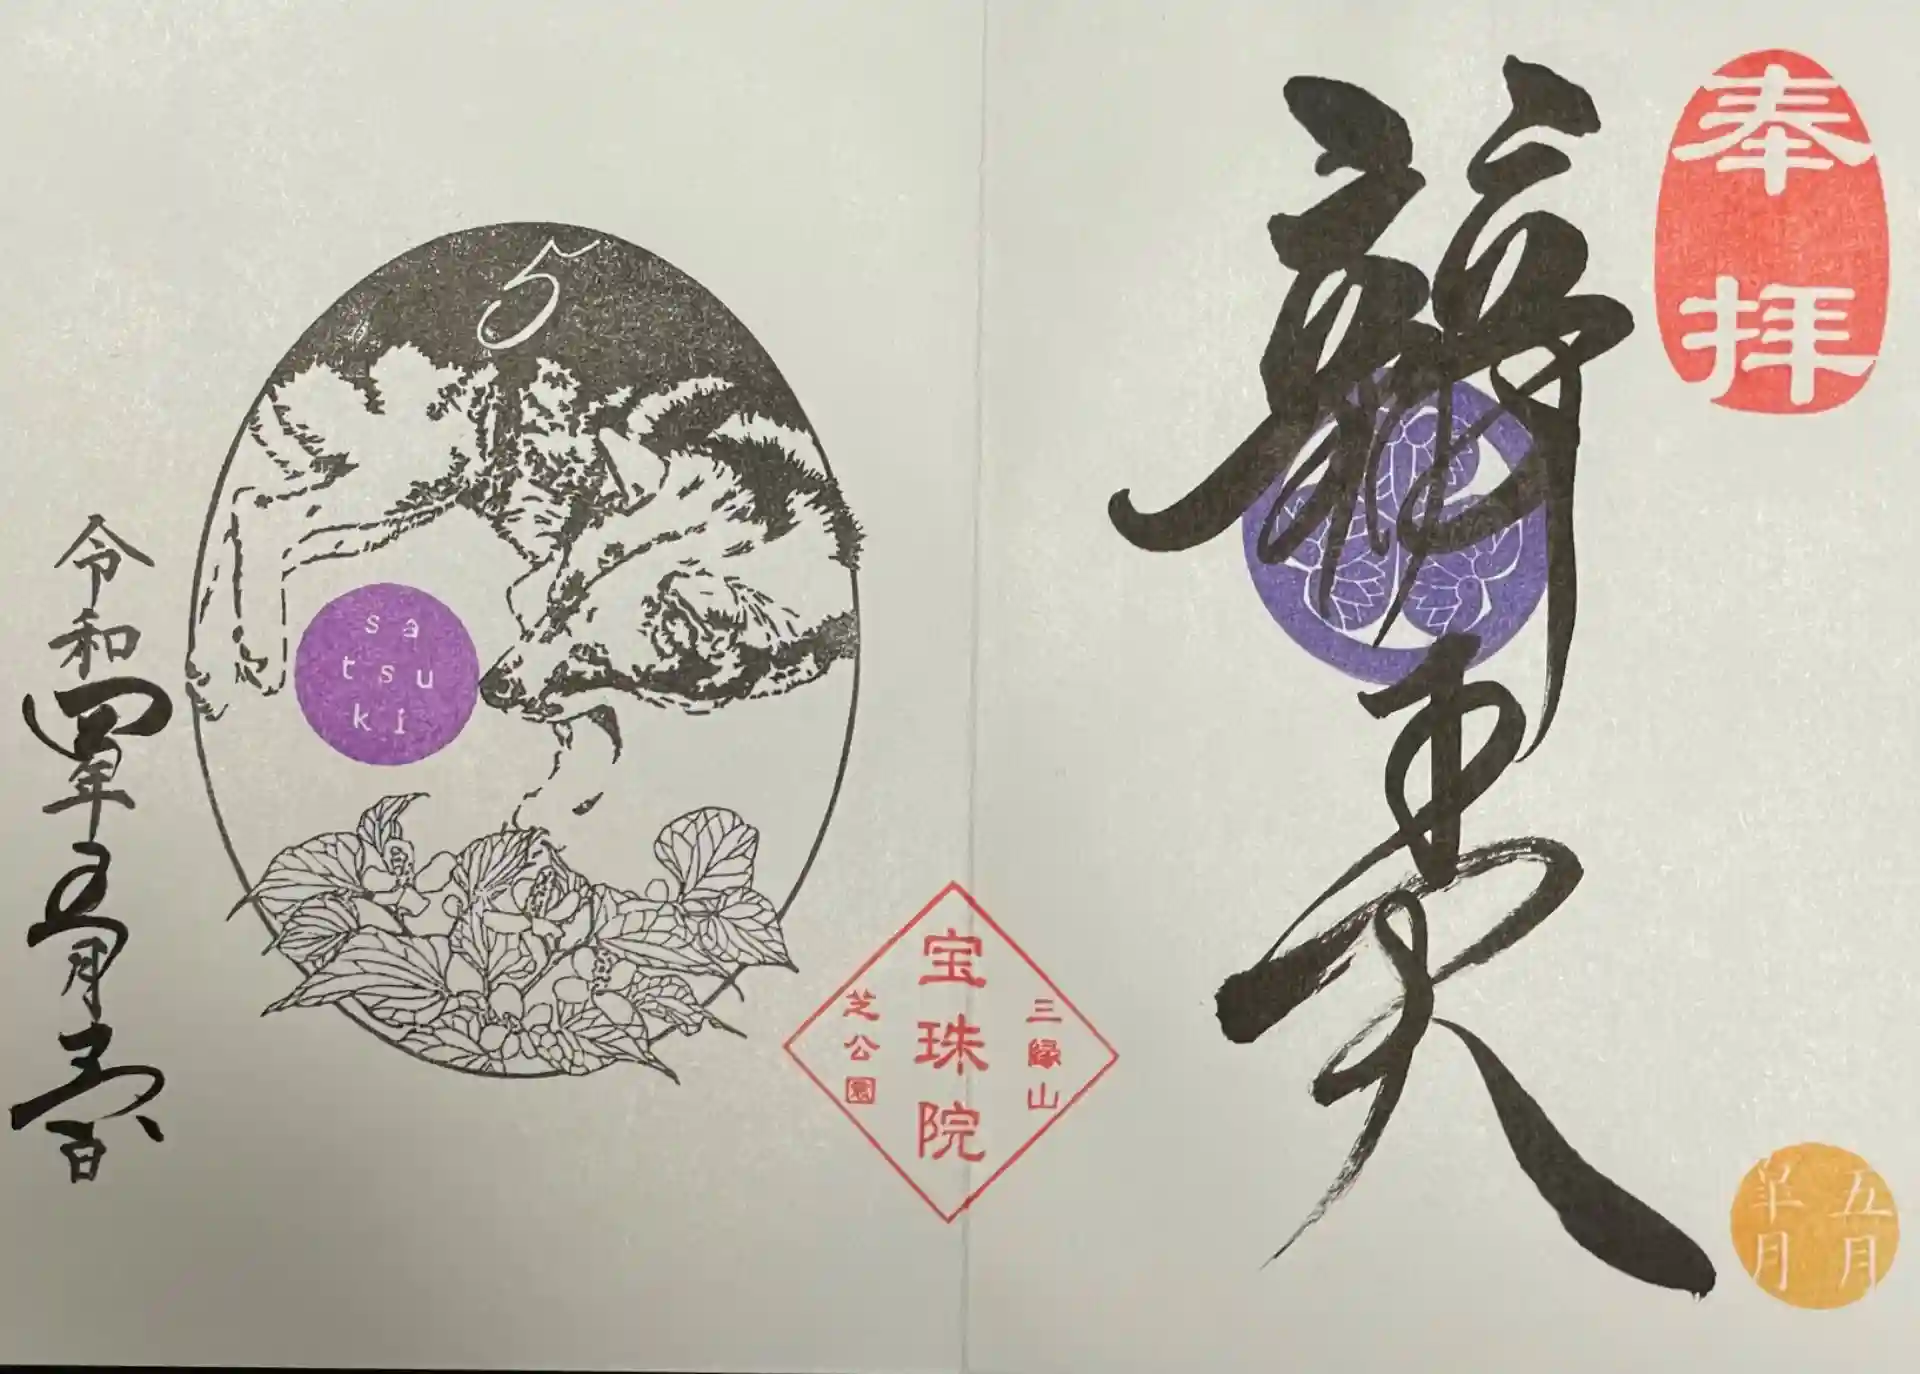 奉拝
辯才天
五月
皐月
三縁山
宝珠院
芝公園
5
sa
tsu
ki
令和四年五月 日